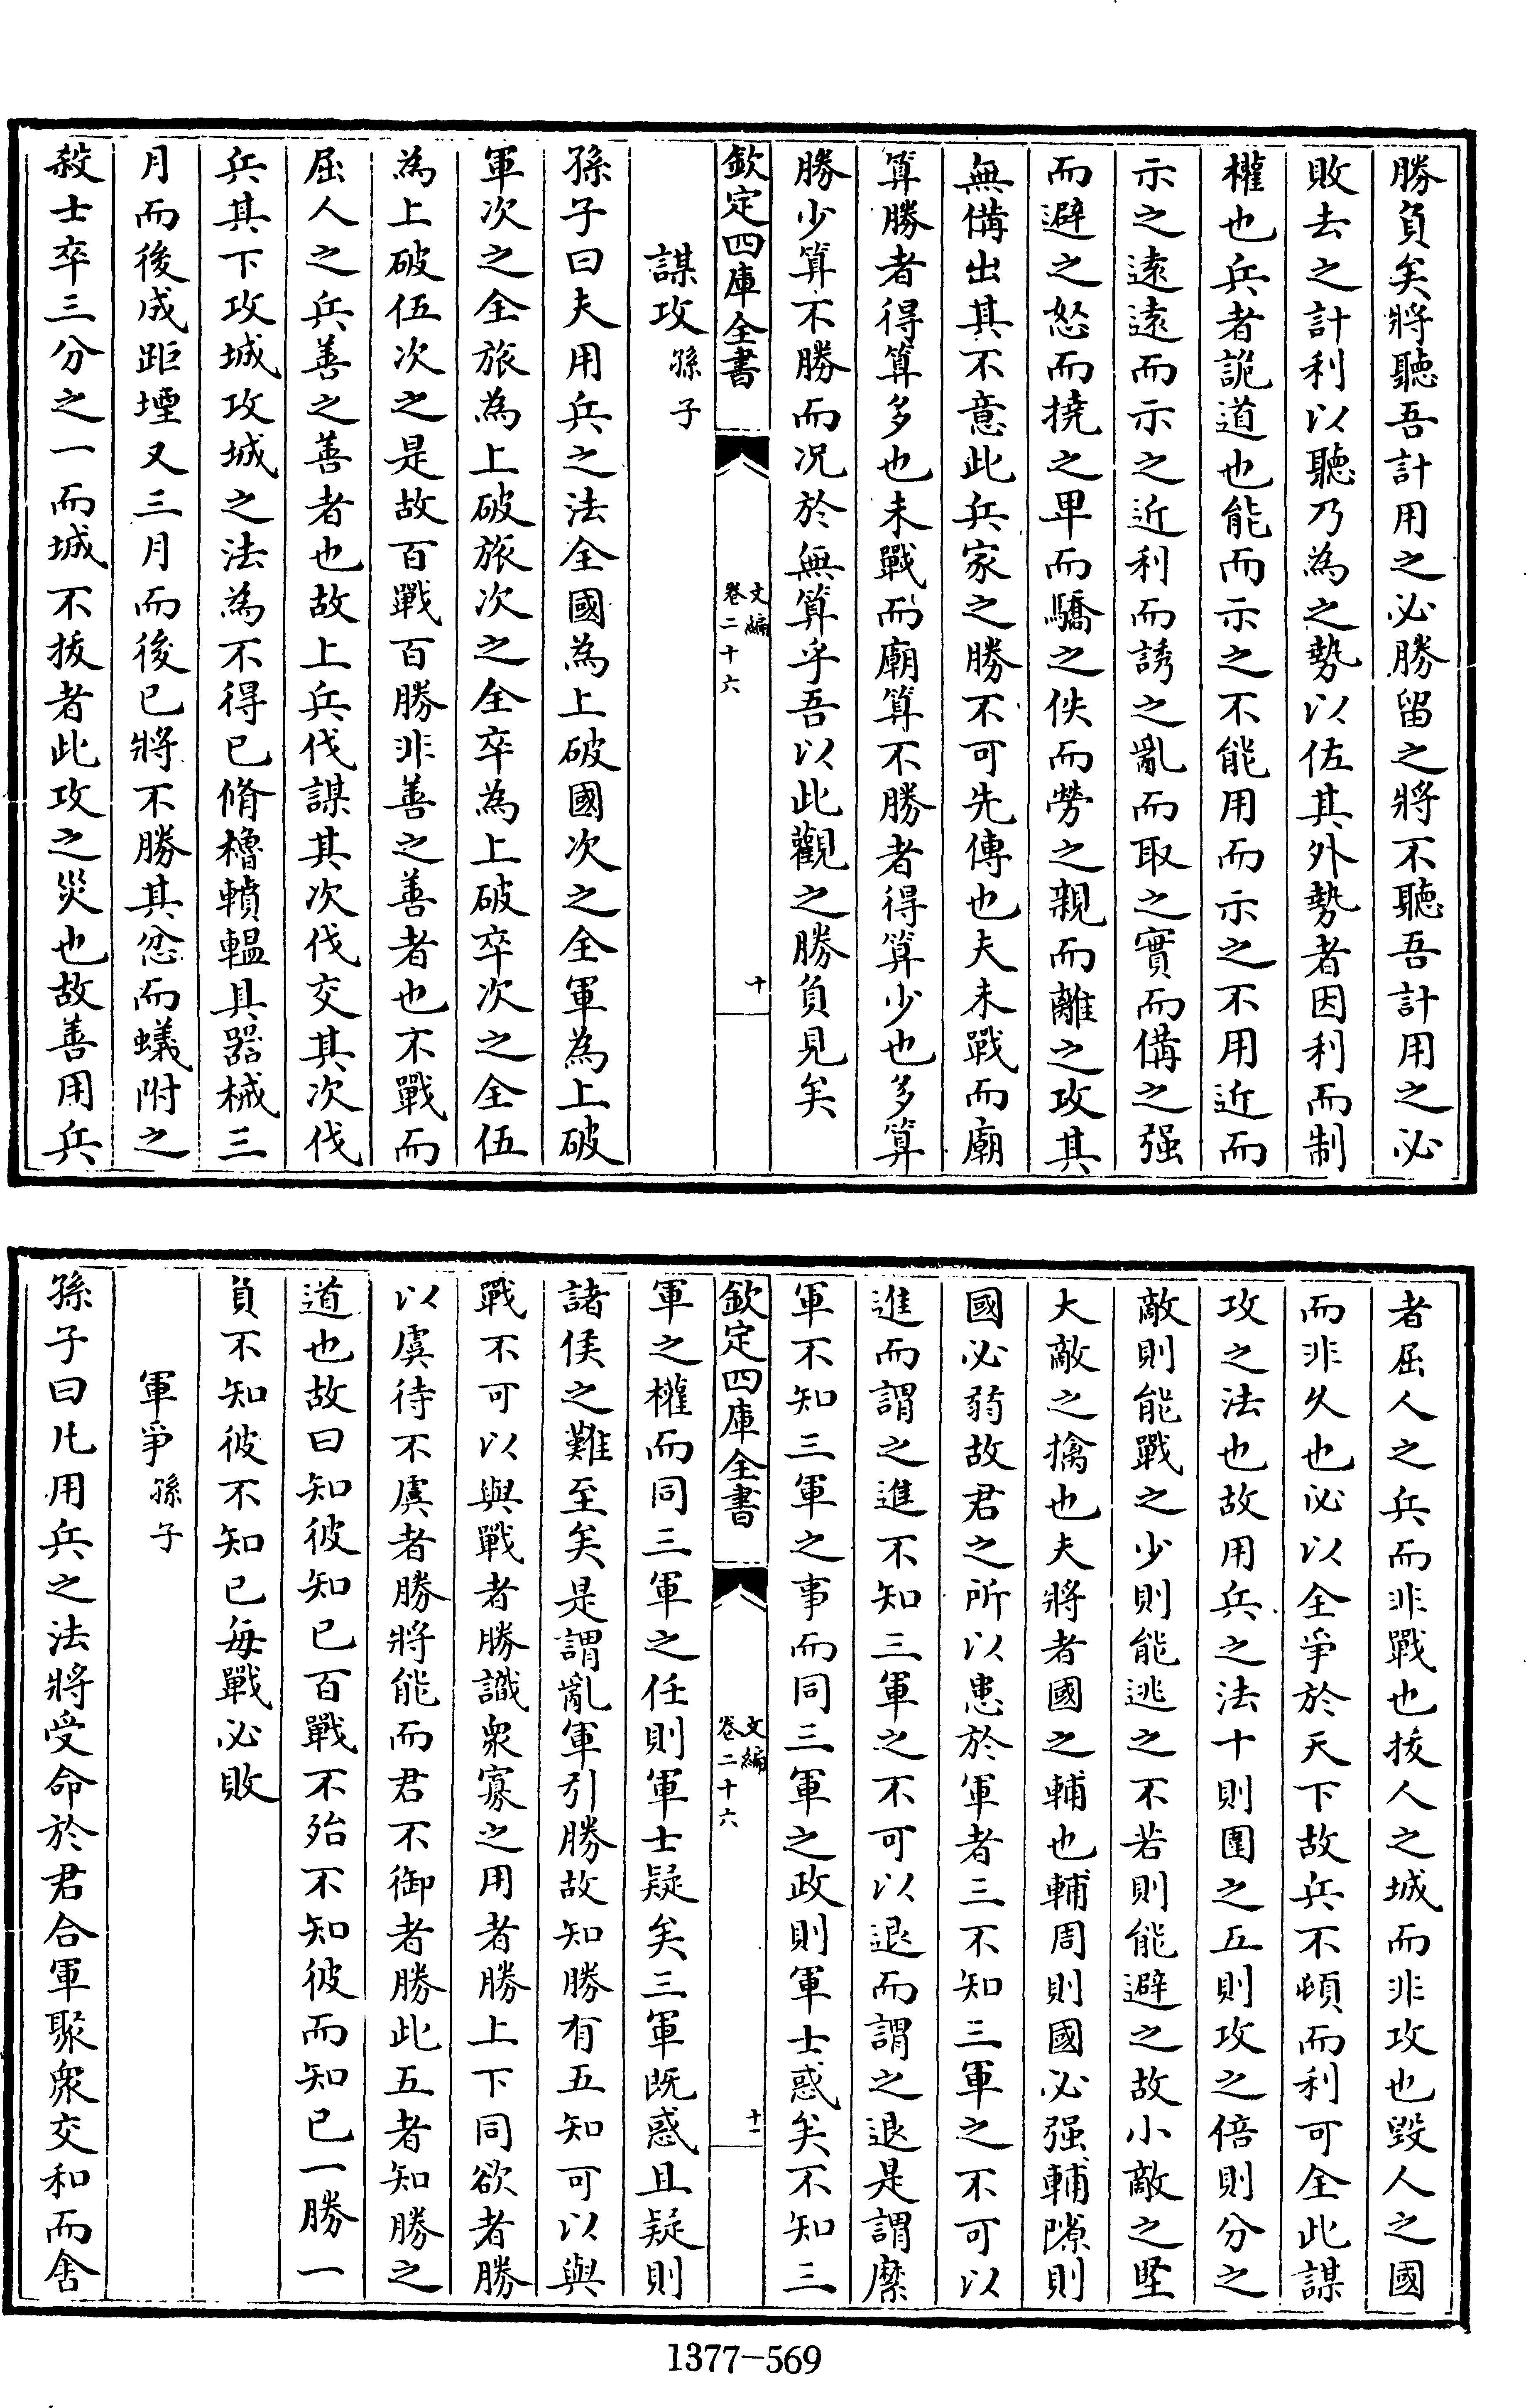 勝負矣將聽吾計用之必勝留之將不聽吾計用之必
敗去之計利以聽乃為之勢以佐其外勢者因利而制
權也兵者詭道也能而示之不能用而示之不用近而
示之遠遠而示之近利而誘之亂而取之實而備之强
而避之怒而撓之卑而驕之佚而勞之親而離之攻其
無備出其不意此兵家之勝不可先傳也夫未戰而廟
算勝者得算多也未戰而廟算不勝者得算少也多算
勝少算不勝而况於無算乎吾以此觀之勝負見矣
欽定四庫全書
文編
卷二十六
十
謀攻孫子
孫子曰夫用兵之法全國為上破國次之全軍為上破
軍次之全旅為上破旅次之全卒為上破卒次之全伍
為上破伍次之是故百戰百勝非善之善者也不戰而
屈人之兵善之善者也故上兵伐謀其次伐交其次伐
兵其下攻城攻城之法為不得已脩櫓轒轀具器械三
月而後成距堙又三月而後已將不勝其忿而蟻附之
殺士卒三分之一而城不拔者此攻之災也故善用兵
者屈人之兵而非戰也拔人之城而非攻也毀人之國
而非久也必以全爭於天下故兵不頓而利可全此謀
攻之法也故用兵之法十則圍之五則攻之倍則分之
敵則能戰之少則能逃之不若則能避之故小敵之堅
大敵之擒也夫將者國之輔也輔周則國必强輔隙則
國必弱故君之所以患於軍者三不知三軍之不可以
進而謂之進不知三軍之不可以退而謂之退是謂縻
軍不知三軍之事而同三軍之政則軍士惑矣不知三
欽定四庫全書
文編
卷二十六
十一
軍之權而同三軍之任則軍士疑矣三軍既惑且疑則
諸侯之難至矣是謂亂軍引勝故知勝有五知可以與
戰不可以與戰者勝識衆寡之用者勝上下同欲者勝
以虞待不虞者勝將能而君不御者勝此五者知勝之
道也故曰知彼知已百戰不殆不知彼而知已一勝一
負不知彼不知已每戰必敗
軍爭孫子
孫子曰凡用兵之法將受命於君合軍聚衆交和而舍
1377-569